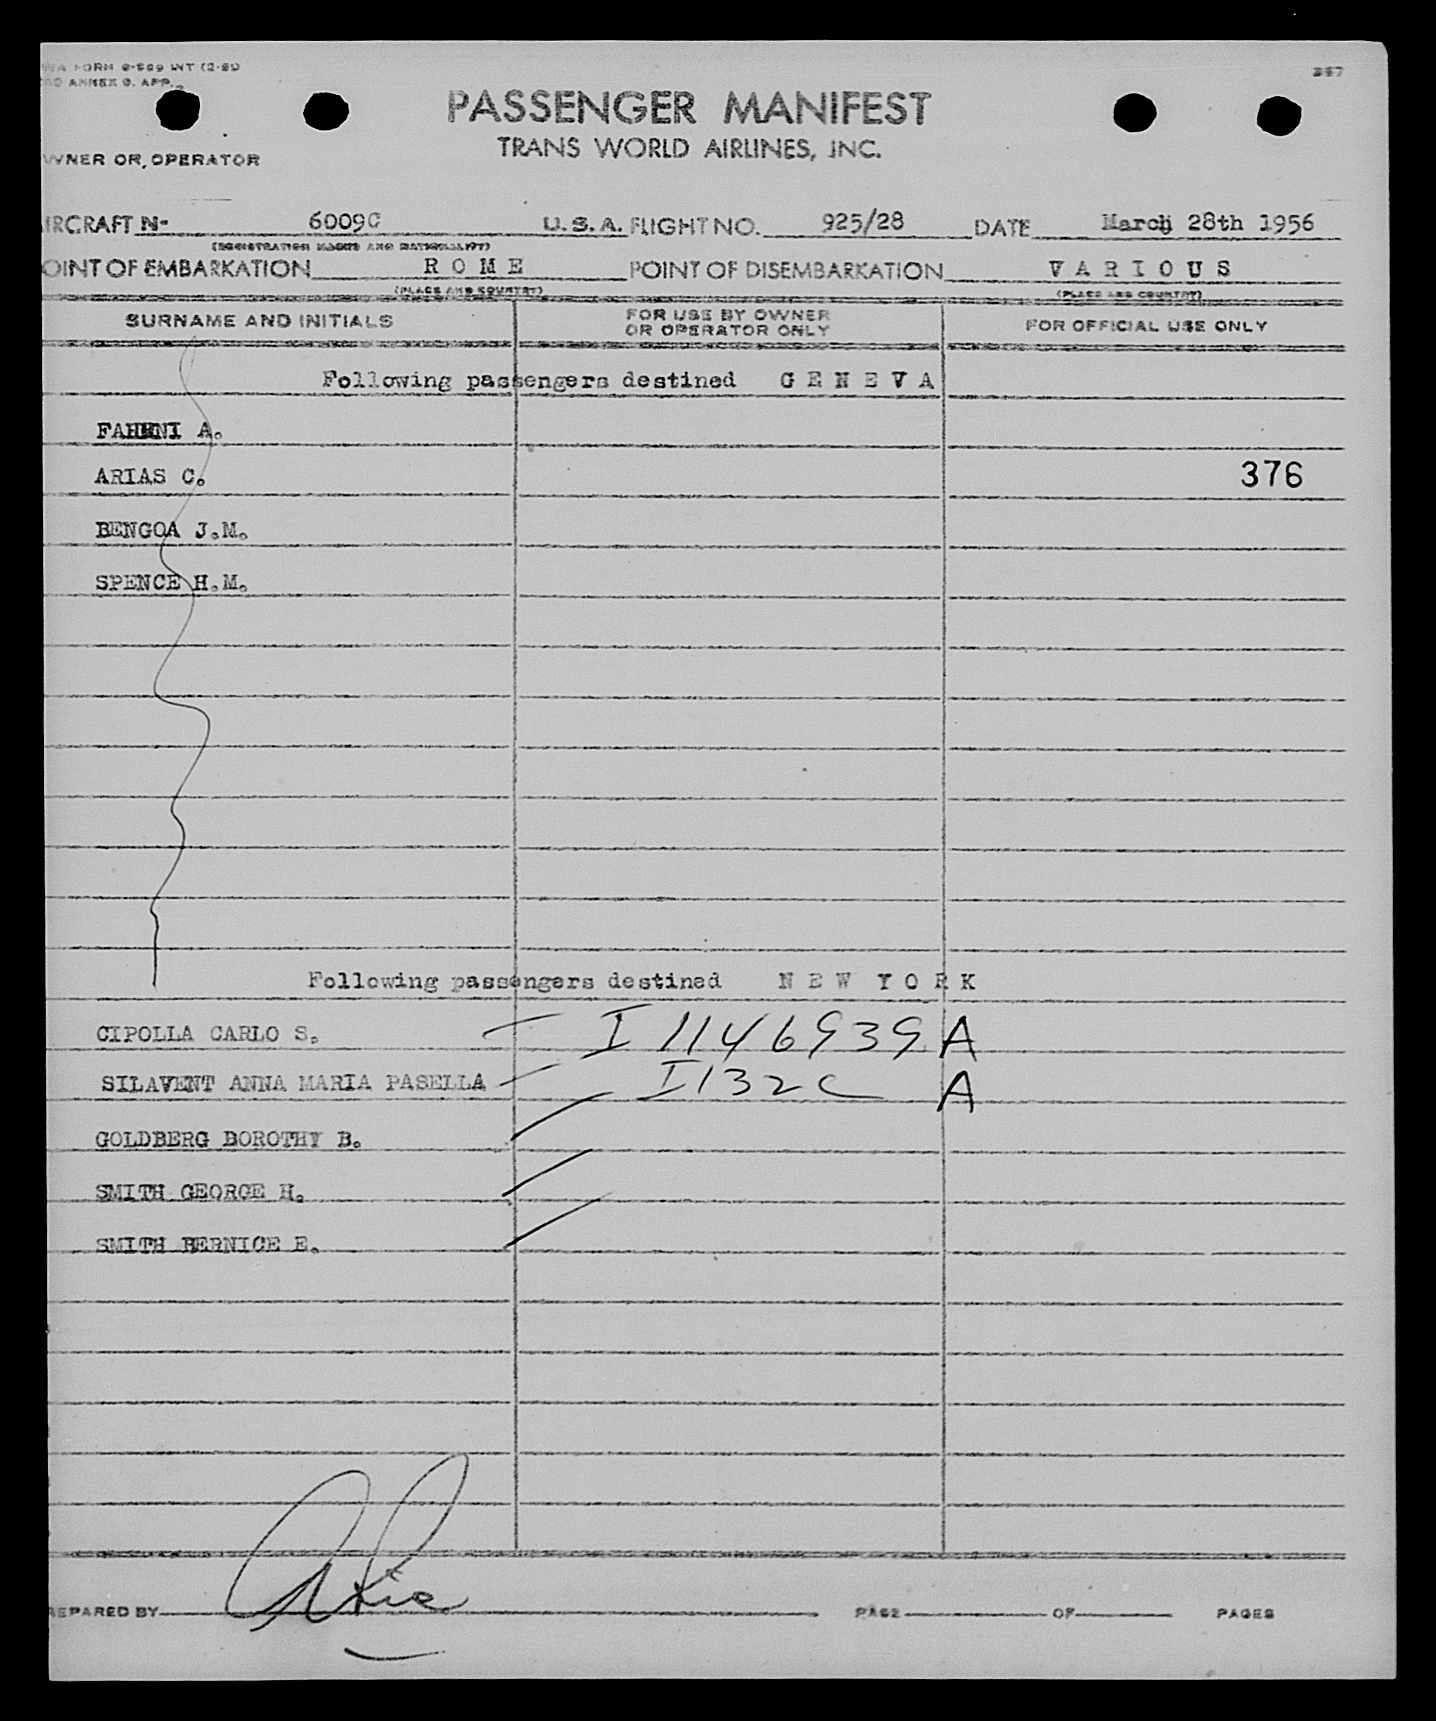 FORM
ANNEX 9. APP.
357
PASSENGER MANIFEST
TRANS WORLD AIRLINES, INC.
WNER OR OPERATOR
IRCRAFT N- 6009C U.S.A. FLIGHT NO. 925/28 DATE March 28th 1956
(REGISTRATION MARKS AND NATIONALITY)
OINT OF EMBARKATION R O M E POINT OF DISEMBARKATION V A R I O U S
(PLACE AND COUNTRY) (PLACE AND COUNTRY)
SURNAME AND INITIALS FOR USE BY OWNER OR OPERATOR ONLY FOR OFFICIAL USE ONLY
Following passengers destined G E N E V A
A.
ARIAS C. 376
BENGOA J.M.
SPENCE H.M.
Following passengers destined N E W Y O R K
CIPOLLA CARLO S. I 1146939 A
SILAVENT ANNA MARIA PASELLA I 132 C A
GOLDBERG BOROTHY B.
SMITH GEORGE H.
SMITH BERNICE E.
EPARED BY PAGE OF PAGES